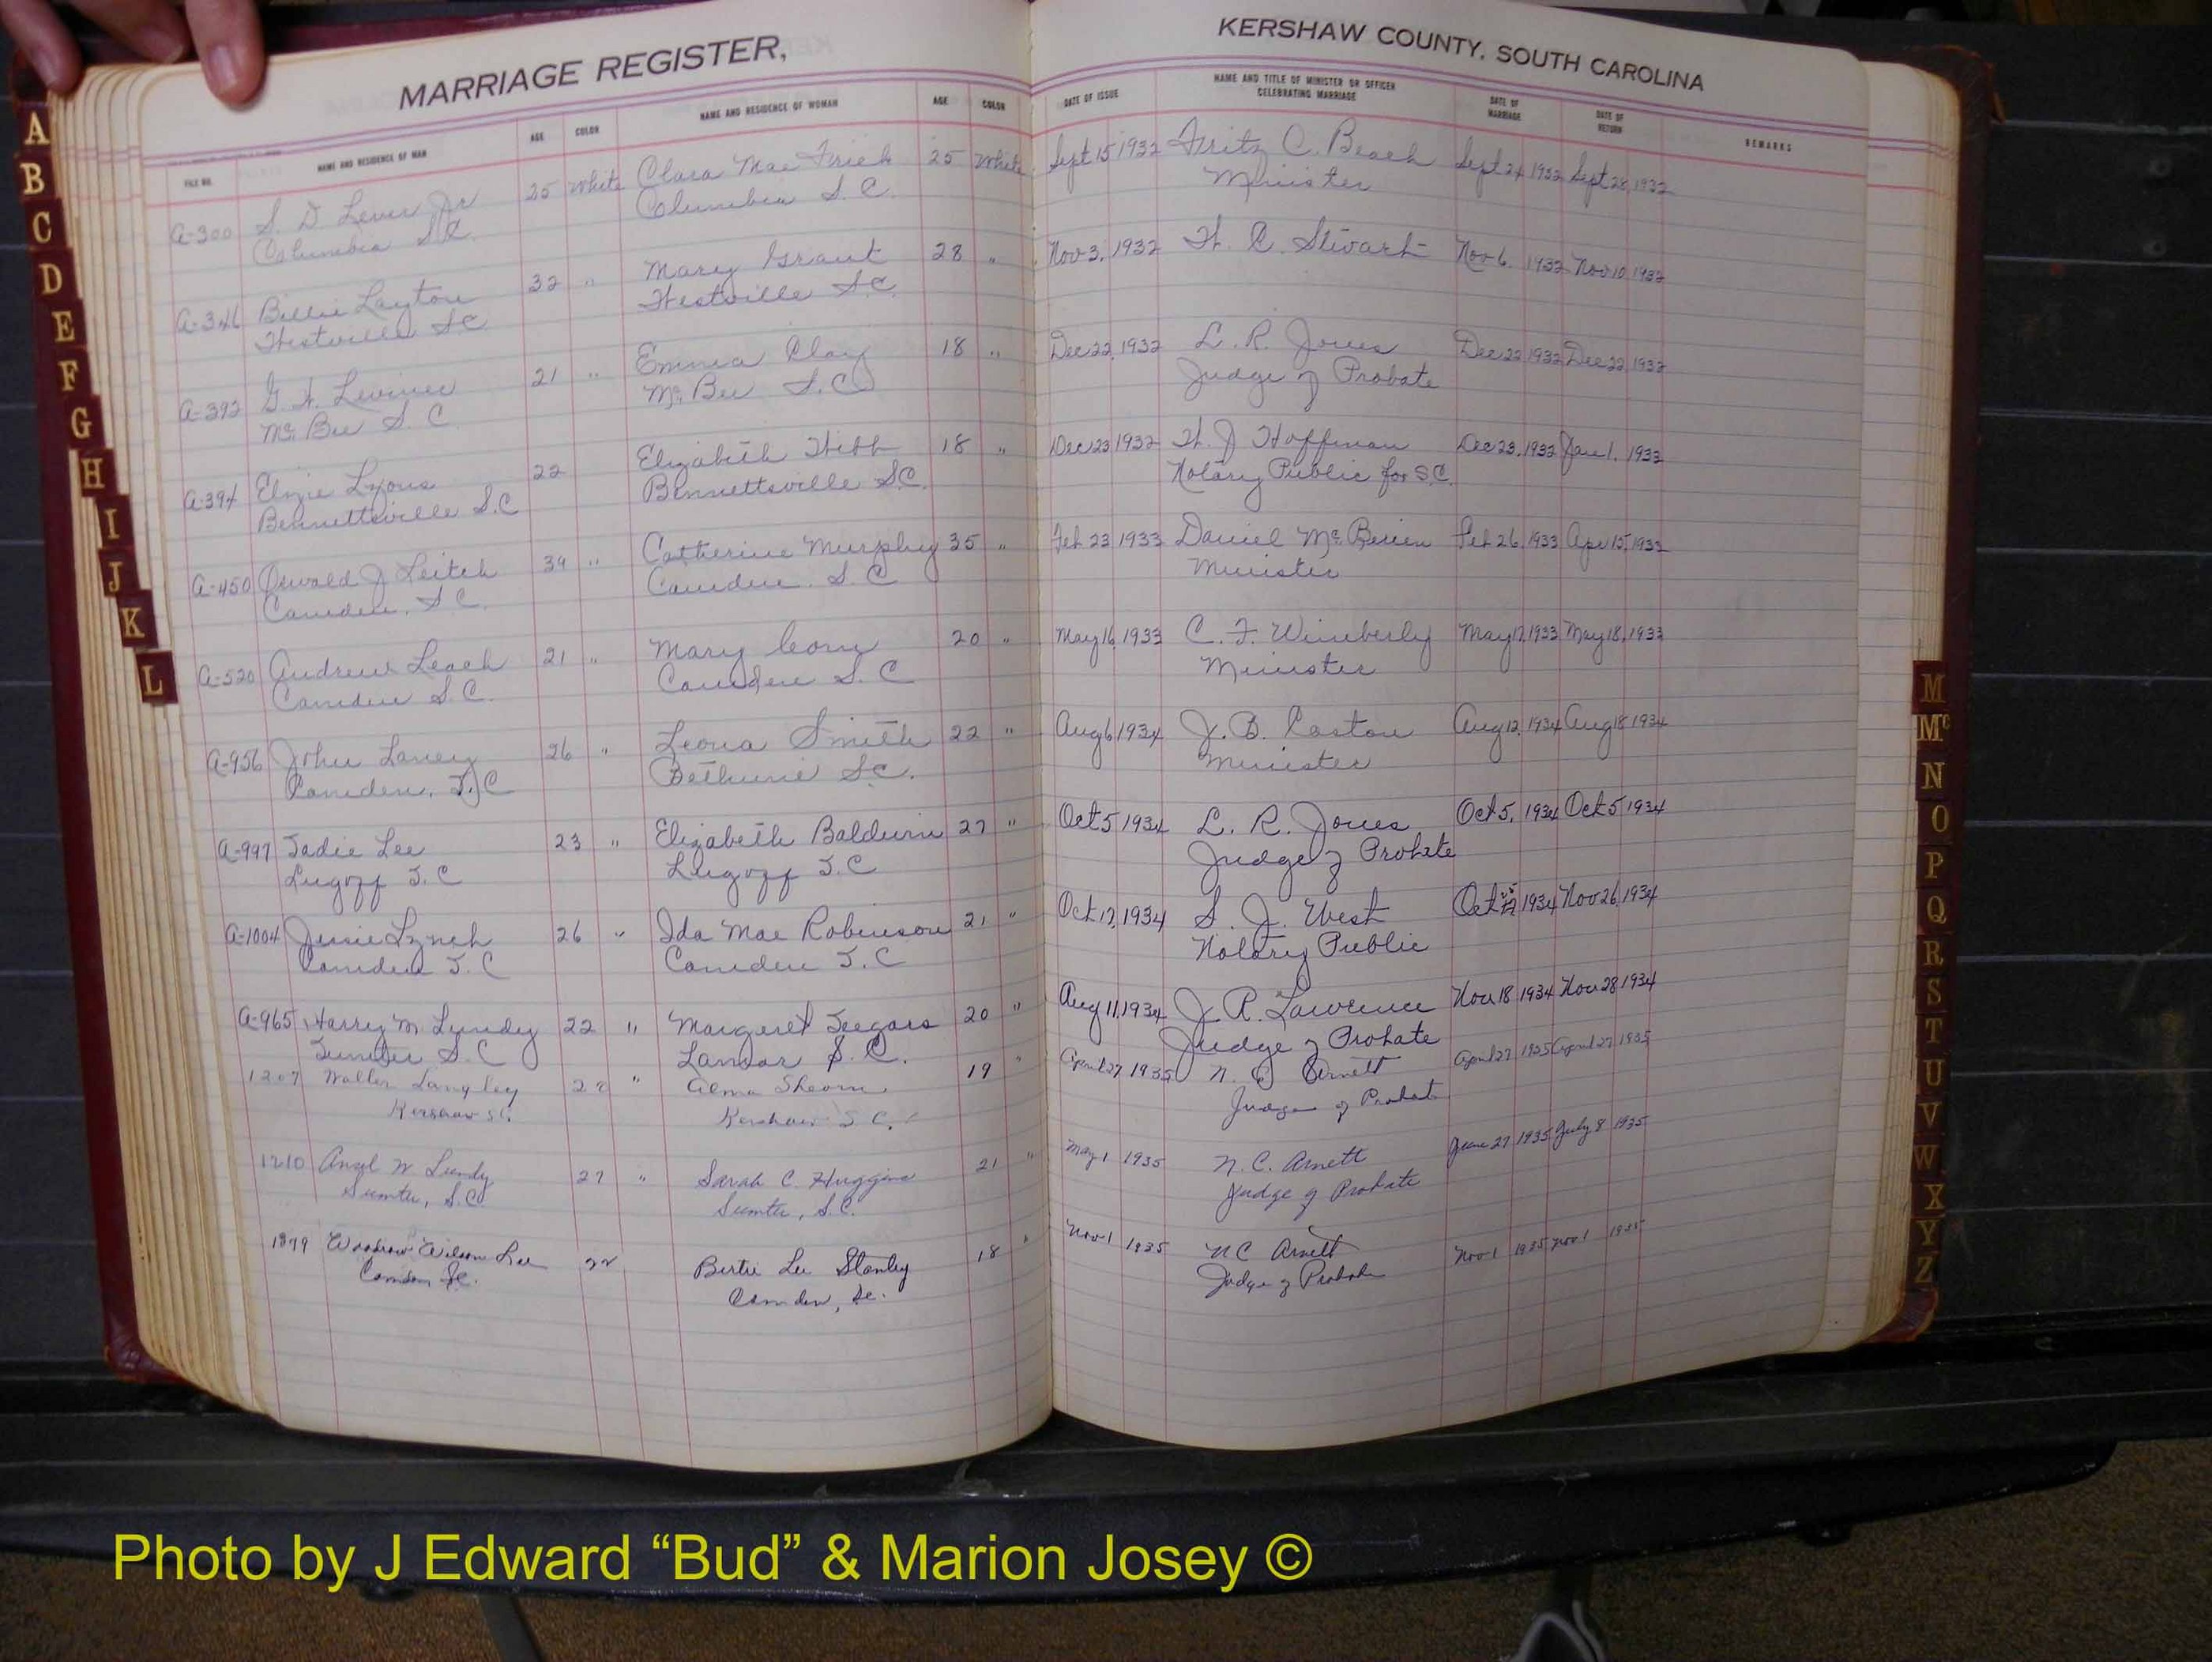 MARRIAGE REGISTER,
KERSHAW COUNTY, SOUTH CAROLINA
FILE NO. NAME AND RESIDENCE OF MAN AGE COLOR NAME AND RESIDENCE OF WOMAN AGE COLOR DATE OF ISSUE NAME AND TITLE OF MINISTER OR OFFICER CELEBRATING MARRIAGE DATE OF MARRIAGE DATE OF RETURN REMARKS
A-300 S. D. Lever Jr 25 White Clara Mae Frick 25 White Sept 15 1932 Fritz C. Beach Sept 24 1932 Sept 28, 1932
Columbia S.C. Columbia S.C. Minister
A-346 Billie Layton 32 " Mary Grant 28 " Nov 3, 1932 C. Stewart Nov 6 1932 Nov 10 1932
Westville S.C. Westville S.C.
A-392 Leviner 21 " Emma Clay 18 " Dec 22, 1932 L. R. Jones Dec 22 1932 Dec 22, 1932
Mc Bee S.C. Mc Bee S.C. Judge of Probate
A-394 Lyons 22 Elizabeth Webb 18 " Dec 23 1932 W. J Hoffman Dec 23, 1932 Jan 1, 1933
Bennettsville S.C Bennettsville S.C. Notary Public for S.C.
A-450 Oswald J Leitch 34 " Catherine Murphy 35 " Feb 23 1933 Daniel Mc Feb 26, 1933 Apr 15, 1933
Camden, S.C. Camden. S.C Minister
A-520 Andrew Leach 21 " Mary 20 " May 16, 1933 C. F. Wimberly May 17, 1933 May 18, 1933
Camden S.C. Camden S.C Minister
A-956 John Laney 26 " Leona Smith 22 " Aug 6 1934 J. B. Caston Aug 12, 1934 Aug 18 1934
Camden, S.C Bethune S.C. Minister
A-997 Jadie Lee 23 " Elizabeth Baldwin 27 " Oct 5 1934 L. R. Jones Oct 5, 1934 Oct 5 1934
Lugoff S.C Lugoff S.C Judge of Probate
A-1004 Jessie Lynch 26 " Ida Mae Robinson 21 " Oct 17, 1934 S. J. West Oct 1934 Nov 26, 1934
Camden S.C Camden S.C Notary Public
A-965 Harry M. Lundy 22 " Margaret Seegars 20 " Aug 11, 1934 J. R. Lawrence Nov 18 1934 Nov 28 1934
Sumter S.C Lamar S.C. Judge of Probate
1207 Walter Langley " Alma Sheorn 19 " April 27 1935 N. C Arnett April 27 1935 April 27 1935
Kershaw SC. Kershaw S C. Judge of Probate
1210 Ansel W. Lundy 27 " Sarah C. Huggins 21 " May 1 1935 N. C. Arnett June 27 1935 July 8 1935
Sumter, S.C. Sumter, S.C. Judge of Probate
1379 Woodrow Wilson Lee 22 Bertie Lee Stanley 18 " Nov 1 1935 N C Arnett Nov 1 1935 Nov 1 1935
Camden Sc. Camden, Sc. Judge of Probate
A
B
C
D
E
F
G
H
I
J
K
L
M
Mc
N
O
P
Q
R
S
T
U
V
W
X
Y
Z
Photo by J Edward “Bud” & Marion Josey ©